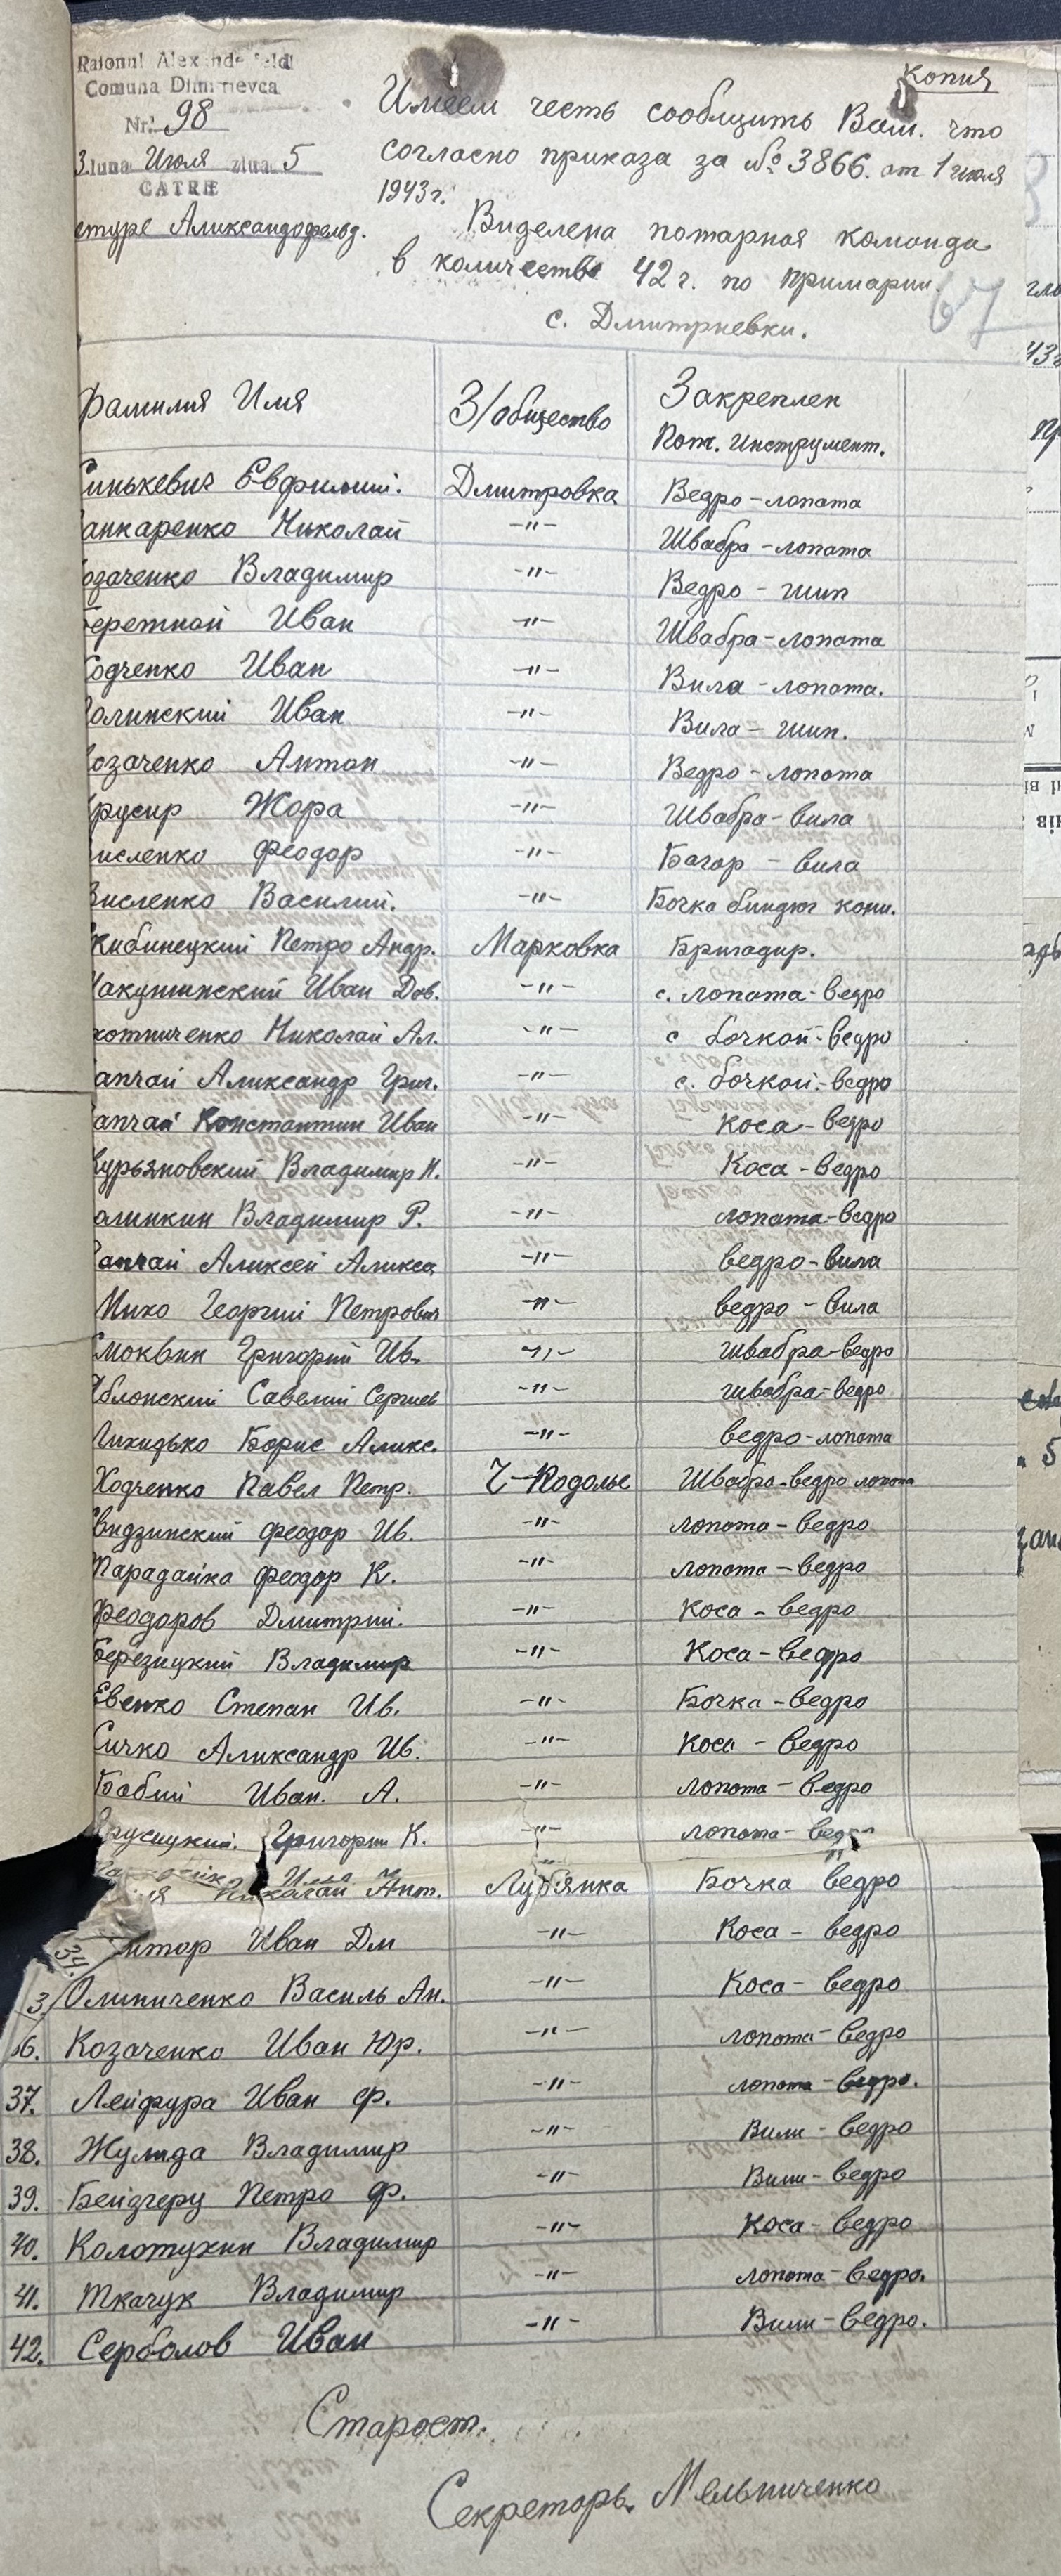 Копия
Raionul Alexanderfeld
Comuna Dimitrievca
Nr. 98
3. luna Июля ziua 5
CATRE
етуре Александрофельд.
Имеем честь сообщить Вам. что
согласно приказа за № 3866. от 1 июля
1943 г.
Виделена пожарная команда
в количестве 42 г. по примарии.
с. Дмитриевки.
67
Фамилия Имя З/общество Закреплен
Пож. инструмент.
Синькевич Евфимий. Дмитровка Ведро - лопата
анкаренко Николай -"- Швабра - лопата
озаченко Владимир -"- Ведро - шип
Бережной Иван -"- Швабра - лопата
Ходченко Иван -"- Вила - лопата.
Иван -"- Вила - шип.
озаченко Антон -"- Ведро - лопата
Жора -"- Швабра - вила
исленко Феодор -"- Багор - вила
исленко Василий. -"- Бочка биндюг кони.
кибинецкий Петро Андр. Марковка Бригадир.
Иван Дов. -"- с. лопата - ведро
хотниченко Николай Ал. -"- с бочкой - ведро
апчай Александр Григ. -"- с. бочкой - ведро
апчай Константин Иван -"- Коса - ведро
Курьяновский Владимир Н. -"- Коса - ведро
алинкин Владимир Р. -"- лопата - ведро
апчай Алексей Алекса -"- ведро - вила
Михо Георгий Петрович -"- ведро - вила
Смоквин Григорий Ив. -"- Швабра - ведро
Яблонский Савелий Сергиев -"- швабра - ведро
Борис Алекс. -"- ведро - лопата
Ходченко Павел Петр. Ч-Подолье Швабра - ведро лопата
Свидзинский Феодор Ив. -"- лопата - ведро
Парадайка Феодор К. -"- лопата - ведро
Феодоров Дмитрий. -"- Коса - ведро
Березицкий Владимир -"- Коса - ведро
Евенко Степан Ив. -"- Бочка - ведро
Сичко Александр Ив. -"- Коса - ведро
Бабий Иван. А. -"- лопата - ведро
Григорий К. -"- лопата - ведро
Илья -"- -"-
Николай Ант. Лубянка Бочка ведро
34. Иван Дм -"- Коса - ведро
3 Олиниченко Василь Ан. -"- Коса - ведро
36. Козаченко Иван Юр. -"- лопата - ведро
37. Лейфура Иван Ф. -"- лопата - ведро.
38. Жулида Владимир -"- Вили - ведро
39. Бейдгеру Петро Ф. -"- Вили - ведро
40. Колотухин Владимир -"- Коса - ведро
41. Ткачук Владимир -"- лопата - ведро.
42. Серболов Иван -"- Вили - ведро.
Старост.
Секреторь. Мельниченко